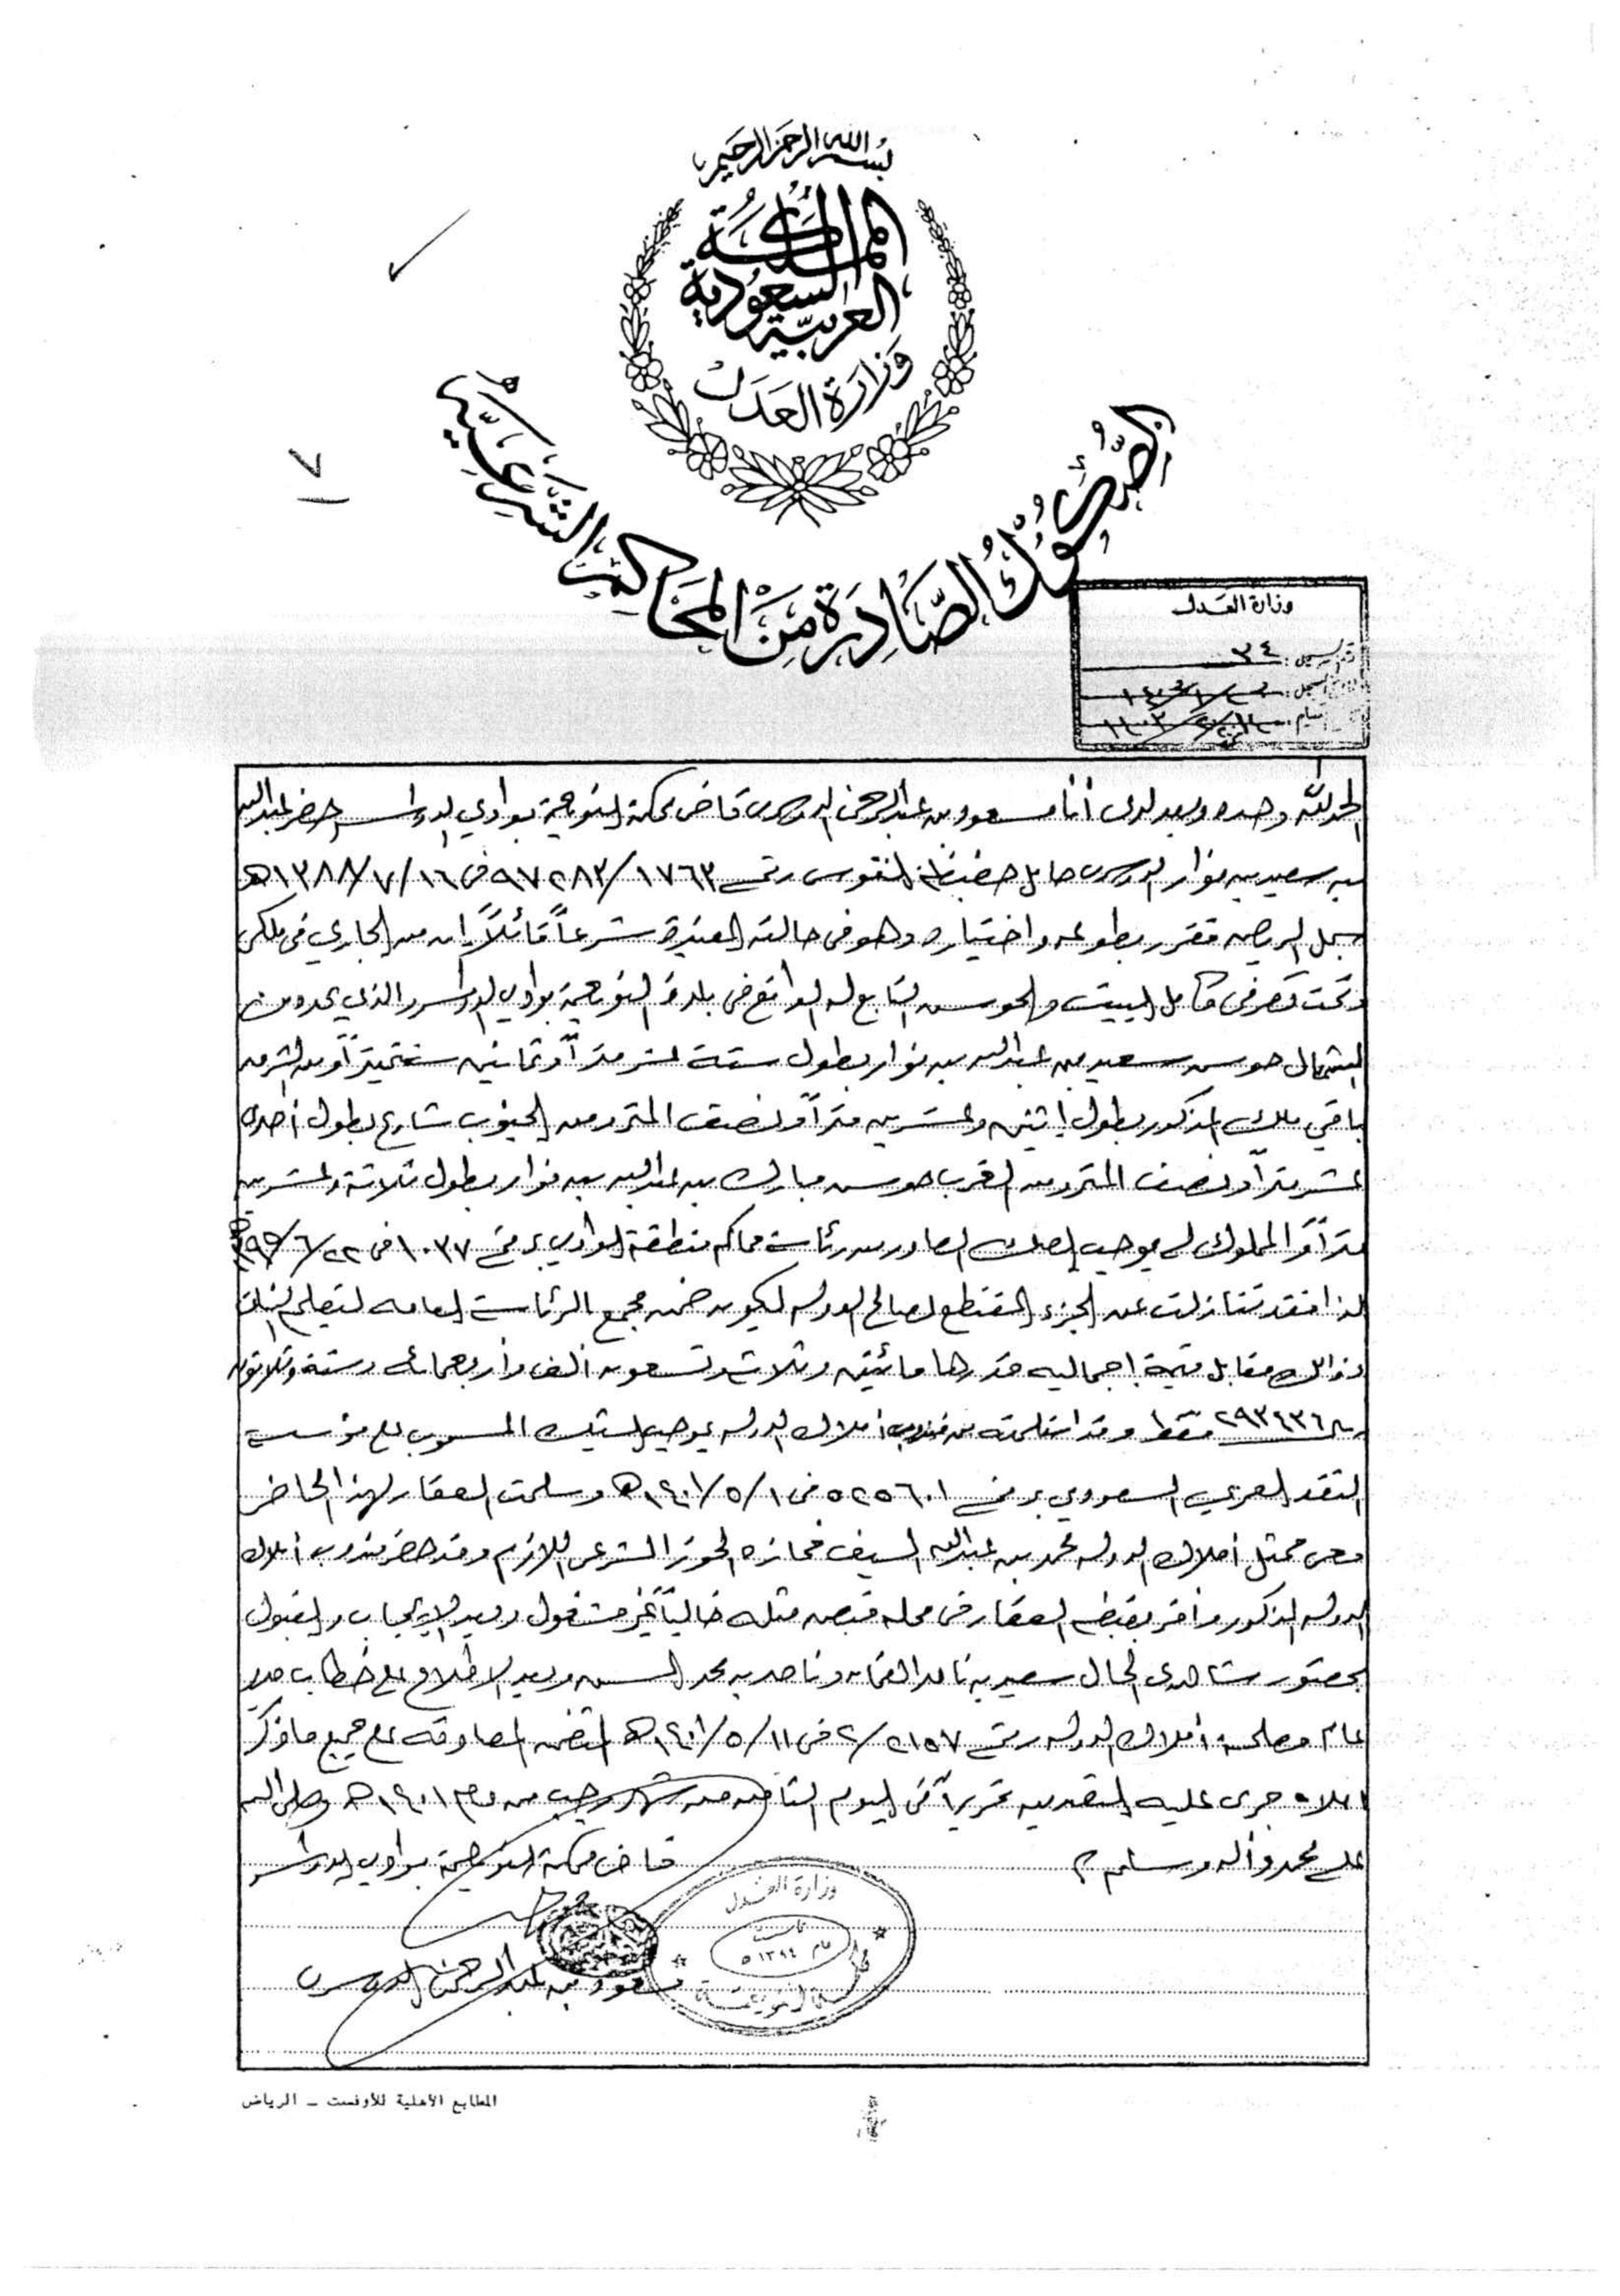 بسم الله الرحمن الرحيم
المملكة
العربية السعودية
وزارة العدل
الصكوك الصادرة من المحاكم الشرعية
١٧
وزارة العدل
٣٤
الحمد لله وحده وبعد لدى أنا مسعود بن عبدالرحمن الدوسري قاضي محكمة النويعمة بوادي الدواسر حضر عبدالله
بن سعيد بن نوار الدوسري حامل حفيظة النفوس رقم ٩٧٢٨٣/١٧٦٣ في ١٦/٧/١٣٨٨هـ
سجل الرياض فقرر بطوعه واختياره وهو في حالته المعتبرة شرعاً قائلاً إن من الجاري في ملكي
وتحت تصرفي كامل البيت والحوش التابع له الواقع في بلدة النويعمة بوادي الدواسر والذي يحده من
الشمال حوش سعيد بن عبدالله بن نوار بطول ستة عشر متراً وثمانين سنتميتراً ومن الشرق
باقي ملك المذكور بطول اثنين وعشرين متراً ونصف المتر ومن الجنوب شارع بطول أحدى
عشر متراً ونصف المتر ومن الغرب حوش مبارك بن عبدالله بن نوار بطول ثلاثة وعشرين
متراً والمملوك لي بموجب الصك الصادر من رئاسة محاكم منطقة الوادي برقم ١٠٣٧ في ٢٢/٦/
لذا فقد تنازلت عن الجزء المقتطع لصالح الدولة ليكون ضمن مجمع الرئاسة العامه لتعليم البنات
وذالك مقابل قيمة إجماليه قدرها مائتين وثلاث وتسعون ألف وأربعمائه وستة وثلاثون
ريال ٢٩٣٤٣٦ فقط وقد استلمته من مندوب أملاك الدولة بموجب الشيك المسحوب على مؤسسة
النقد العربي السعودي برقم ٥٢٥٦٠١ في ١/٥/١٤٠١هـ وسلمت العقار لهذا الحاضر
معي ممثل أملاك الدولة محمد بن عبدالله السيف فحازه الحوز الشرعي اللازم وقد حضر مندوب أملاك
الدولة المذكور وأقر بقبضه العقار في محله قبض مثله خالياً غير مشغول وبعد الإيجاب والقبول
بحضور شاهدي الحال سعيد بن وناصر بن محمد وبعد الاطلاع على خطاب مدير
عام مصلحة أملاك الدولة رقم ٢١٥٧/٢ في ١١/٥/١٤٠١هـ المتضمن المصادقه على جميع ما ذكر
أعلاه جرى عليه التصديق تحريراً في اليوم الثامن من شهر رجب من عام ١٤٠١هـ وصلى الله
على محمد وآله وسلم
قاضي محكمة النويعمة بوادي الدواسر
وزارة العدل
تأسست
عام ١٣٩٤ هـ
محكمة النويعمة
مسعود بن عبدالرحمن الدوسري
المطابع الأهلية للأوفست - الرياض